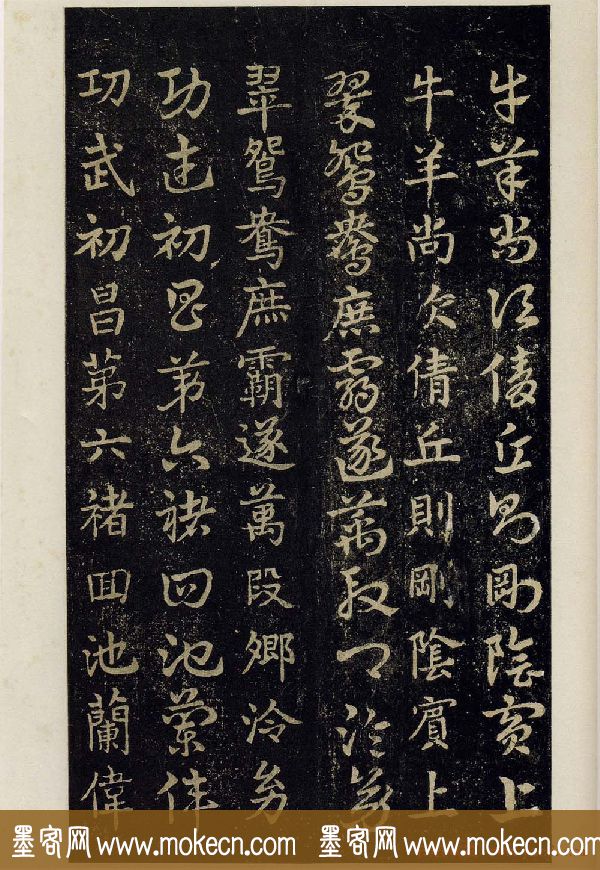 牛羊尚次倩丘則剛陰賓上
牛羊尚次倩丘則剛陰賓上
翠鴛鴦庶霸遂萬段卿泠幼
翠鴛鴦庶霸遂萬段卿泠幼
功武初昌苐六褚回池蘭偉
功武初昌苐六褚回池蘭偉
墨客网 www.mokecn.com 墨客网 www.mokecn.com